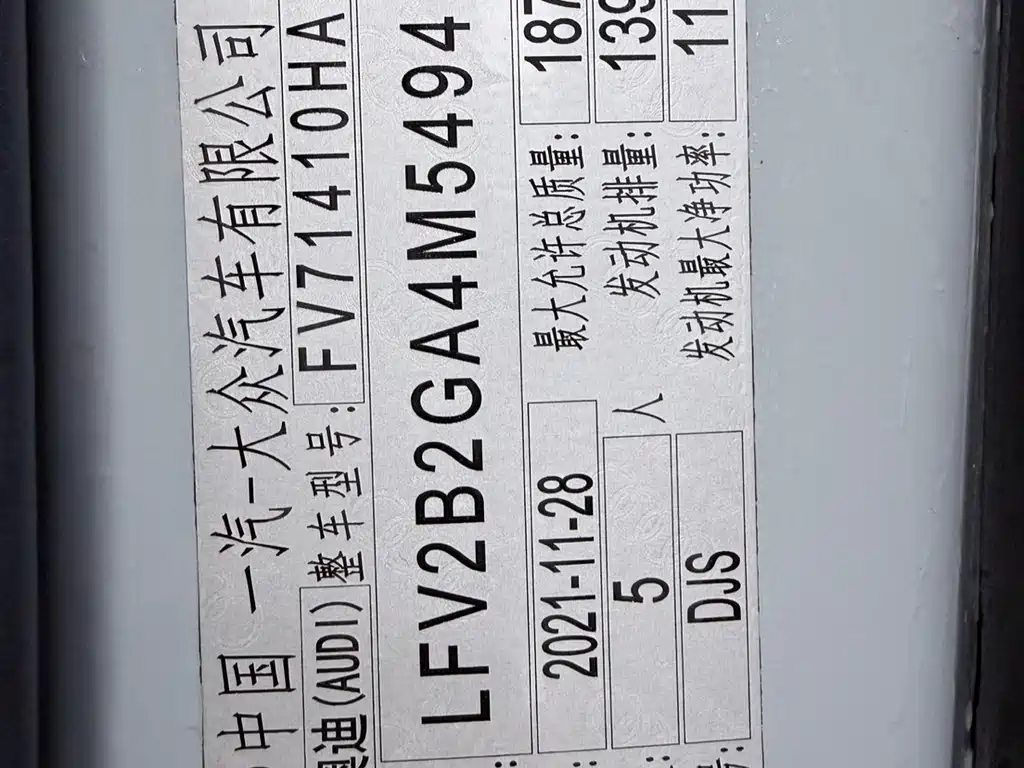 中国 一汽-大众汽车有限公司
迪(AUDI) 整车型号: FV71410HA
LFV2B2GA4M5494
2021-11-28 最大允许总质量: 187
5 人 发动机排量: 139
DJS 发动机最大净功率: 11